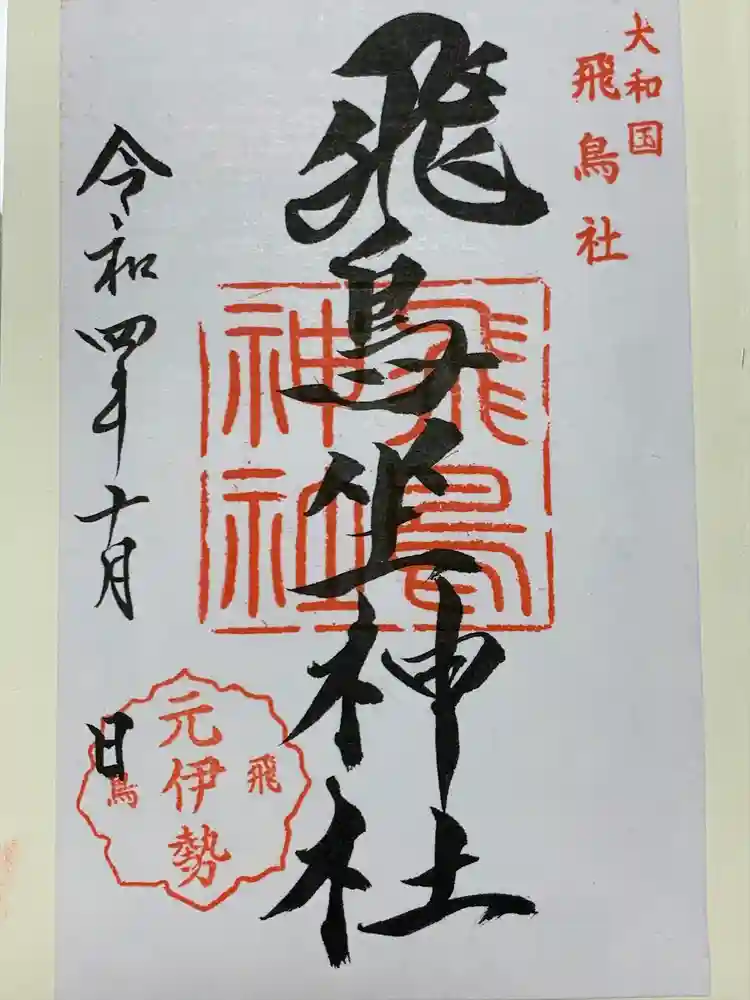 大和国
飛鳥社
飛鳥坐神社
飛鳥
神社
令和四年十月
日
元伊勢
飛
鳥